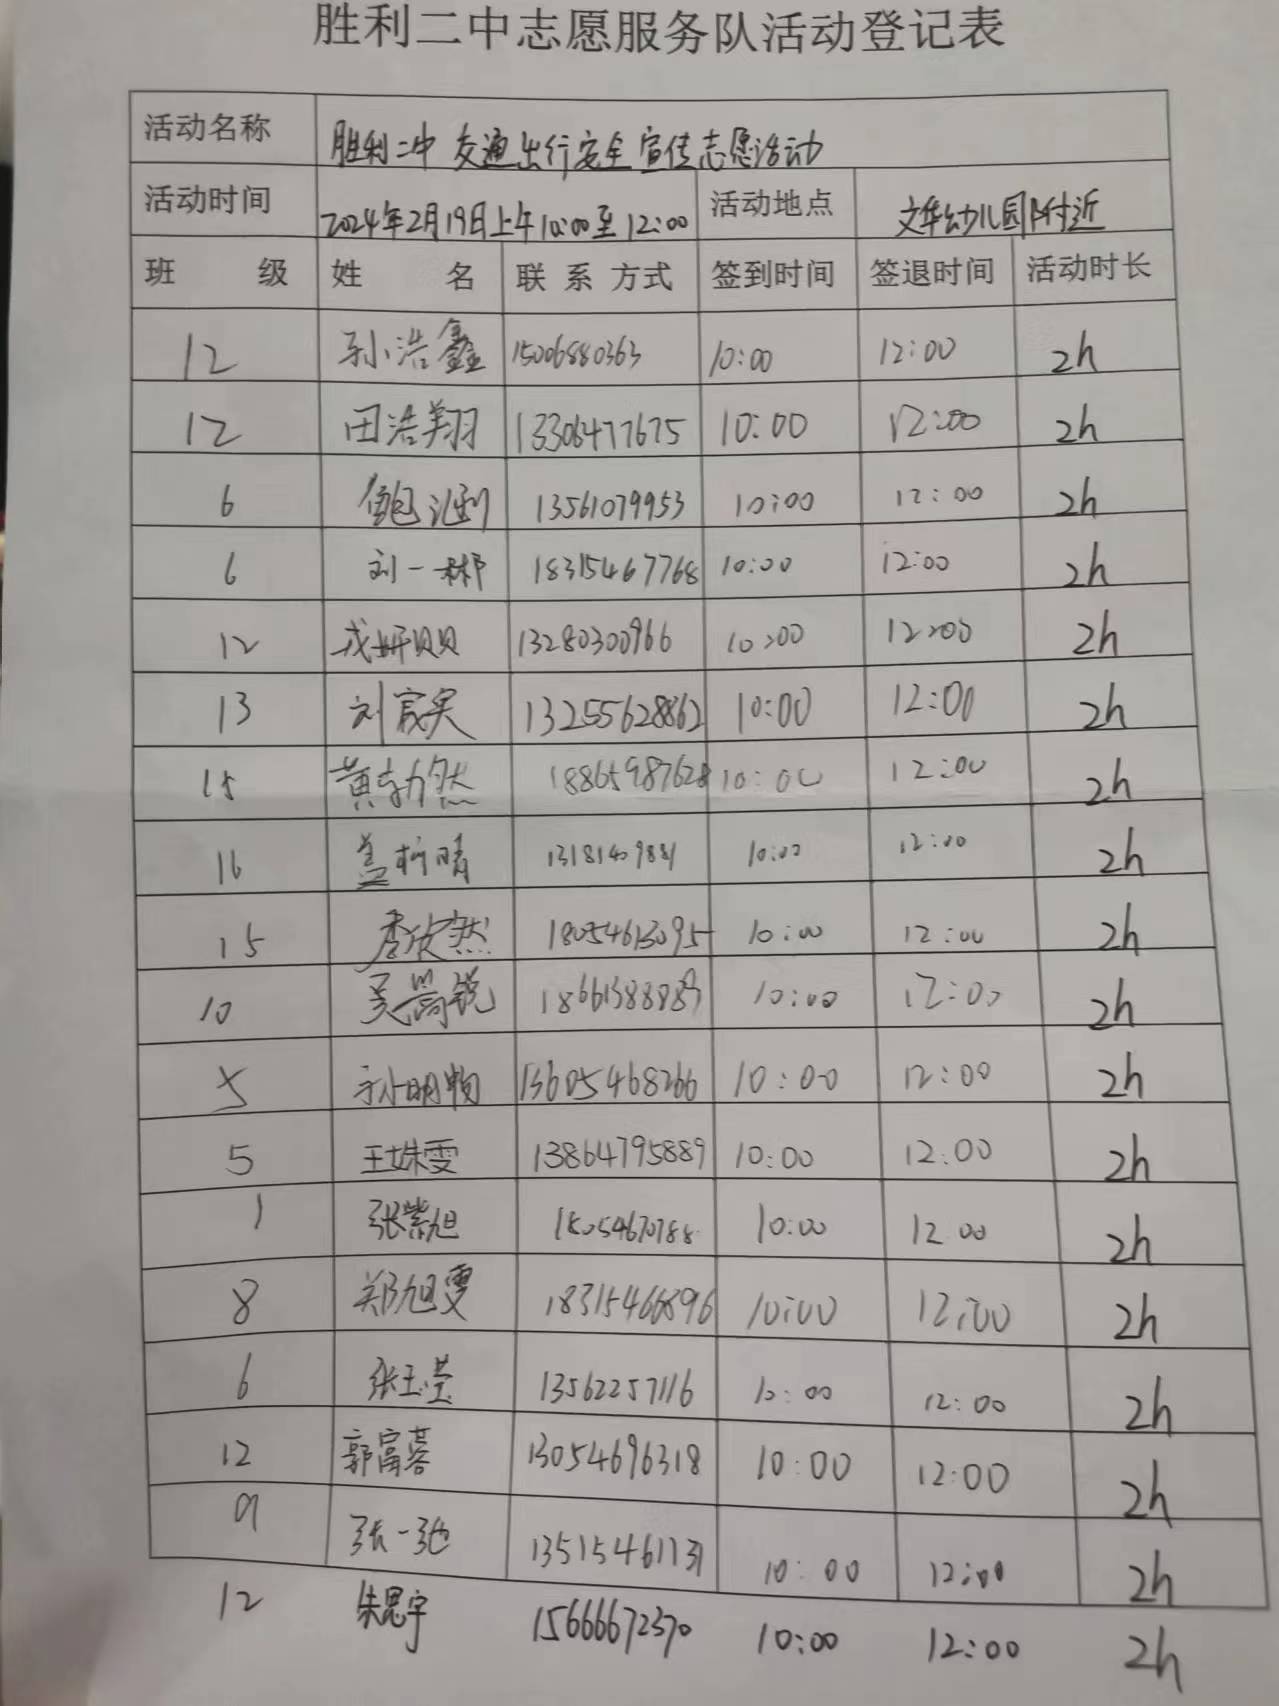 胜利二中志愿服务队活动登记表
活动名称 胜利二中 交通出行安全宣传志愿活动
活动时间 2024年2月19日上午10:00至12:00 活动地点 文华幼儿园附近
班 级 姓 名 联 系 方式 签到时间 签退时间 活动时长
12 孙浩鑫 15006880363 10:00 12:00 2h
12 田浩翔 13306477675 10:00 12:00 2h
6 13561079953 10:00 12:00 2h
6 刘一彬 18315467768 10:00 12:00 2h
12 13280300966 10:00 12:00 2h
13 刘宸实 13255628862 10:00 12:00 2h
15 黄勃然 18865987628 10:00 12:00 2h
16 盖析晴 10:00 12:00 2h
15 李欣然 18054613095 10:00 12:00 2h
10 吴嵩锐 10:00 12:00 2h
5 孙明畅 13605468266 10:00 12:00 2h
5 王姝雯 13864795889 10:00 12:00 2h
1 张紫旭 18054670788 10:00 12:00 2h
8 郑旭雯 18315466896 10:00 12:00 2h
6 张玉莹 13562257116 10:00 12:00 2h
12 郭富蓉 13054696318 10:00 12:00 2h
9 张一弛 10:00 12:00 2h
12 朱思宇 15666672370 10:00 12:00 2h